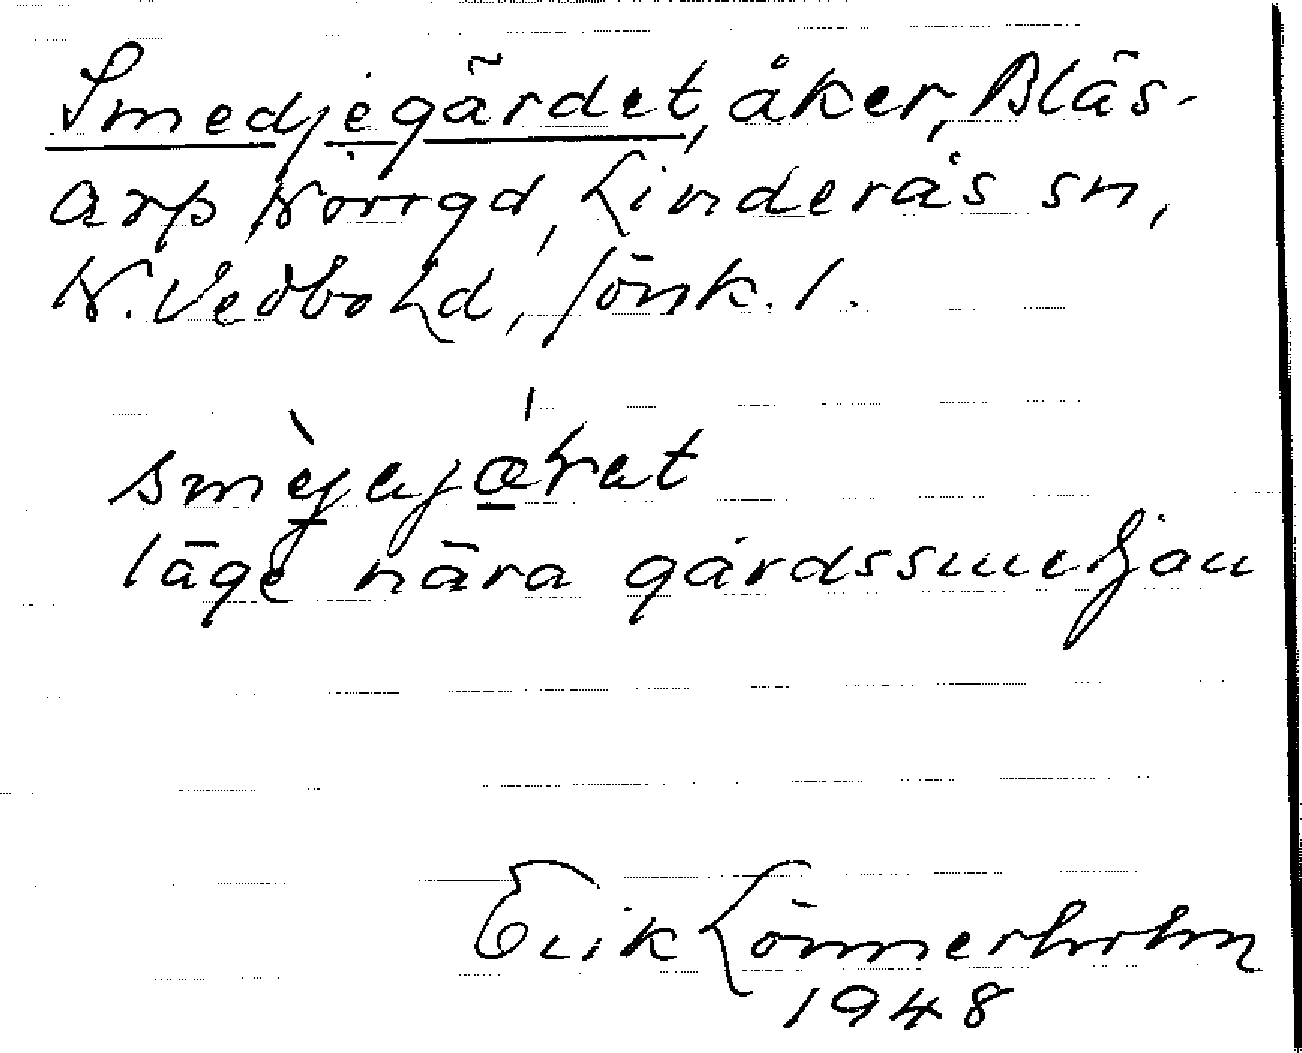 Smedjegärdet, åker, Bläs-
arp Norrgd, Linderås sn,
N. Vedbo hd, Jönk. l.
smèjejǽret
läge nära gårdssmedjan
Erik Lönnerholm
1948